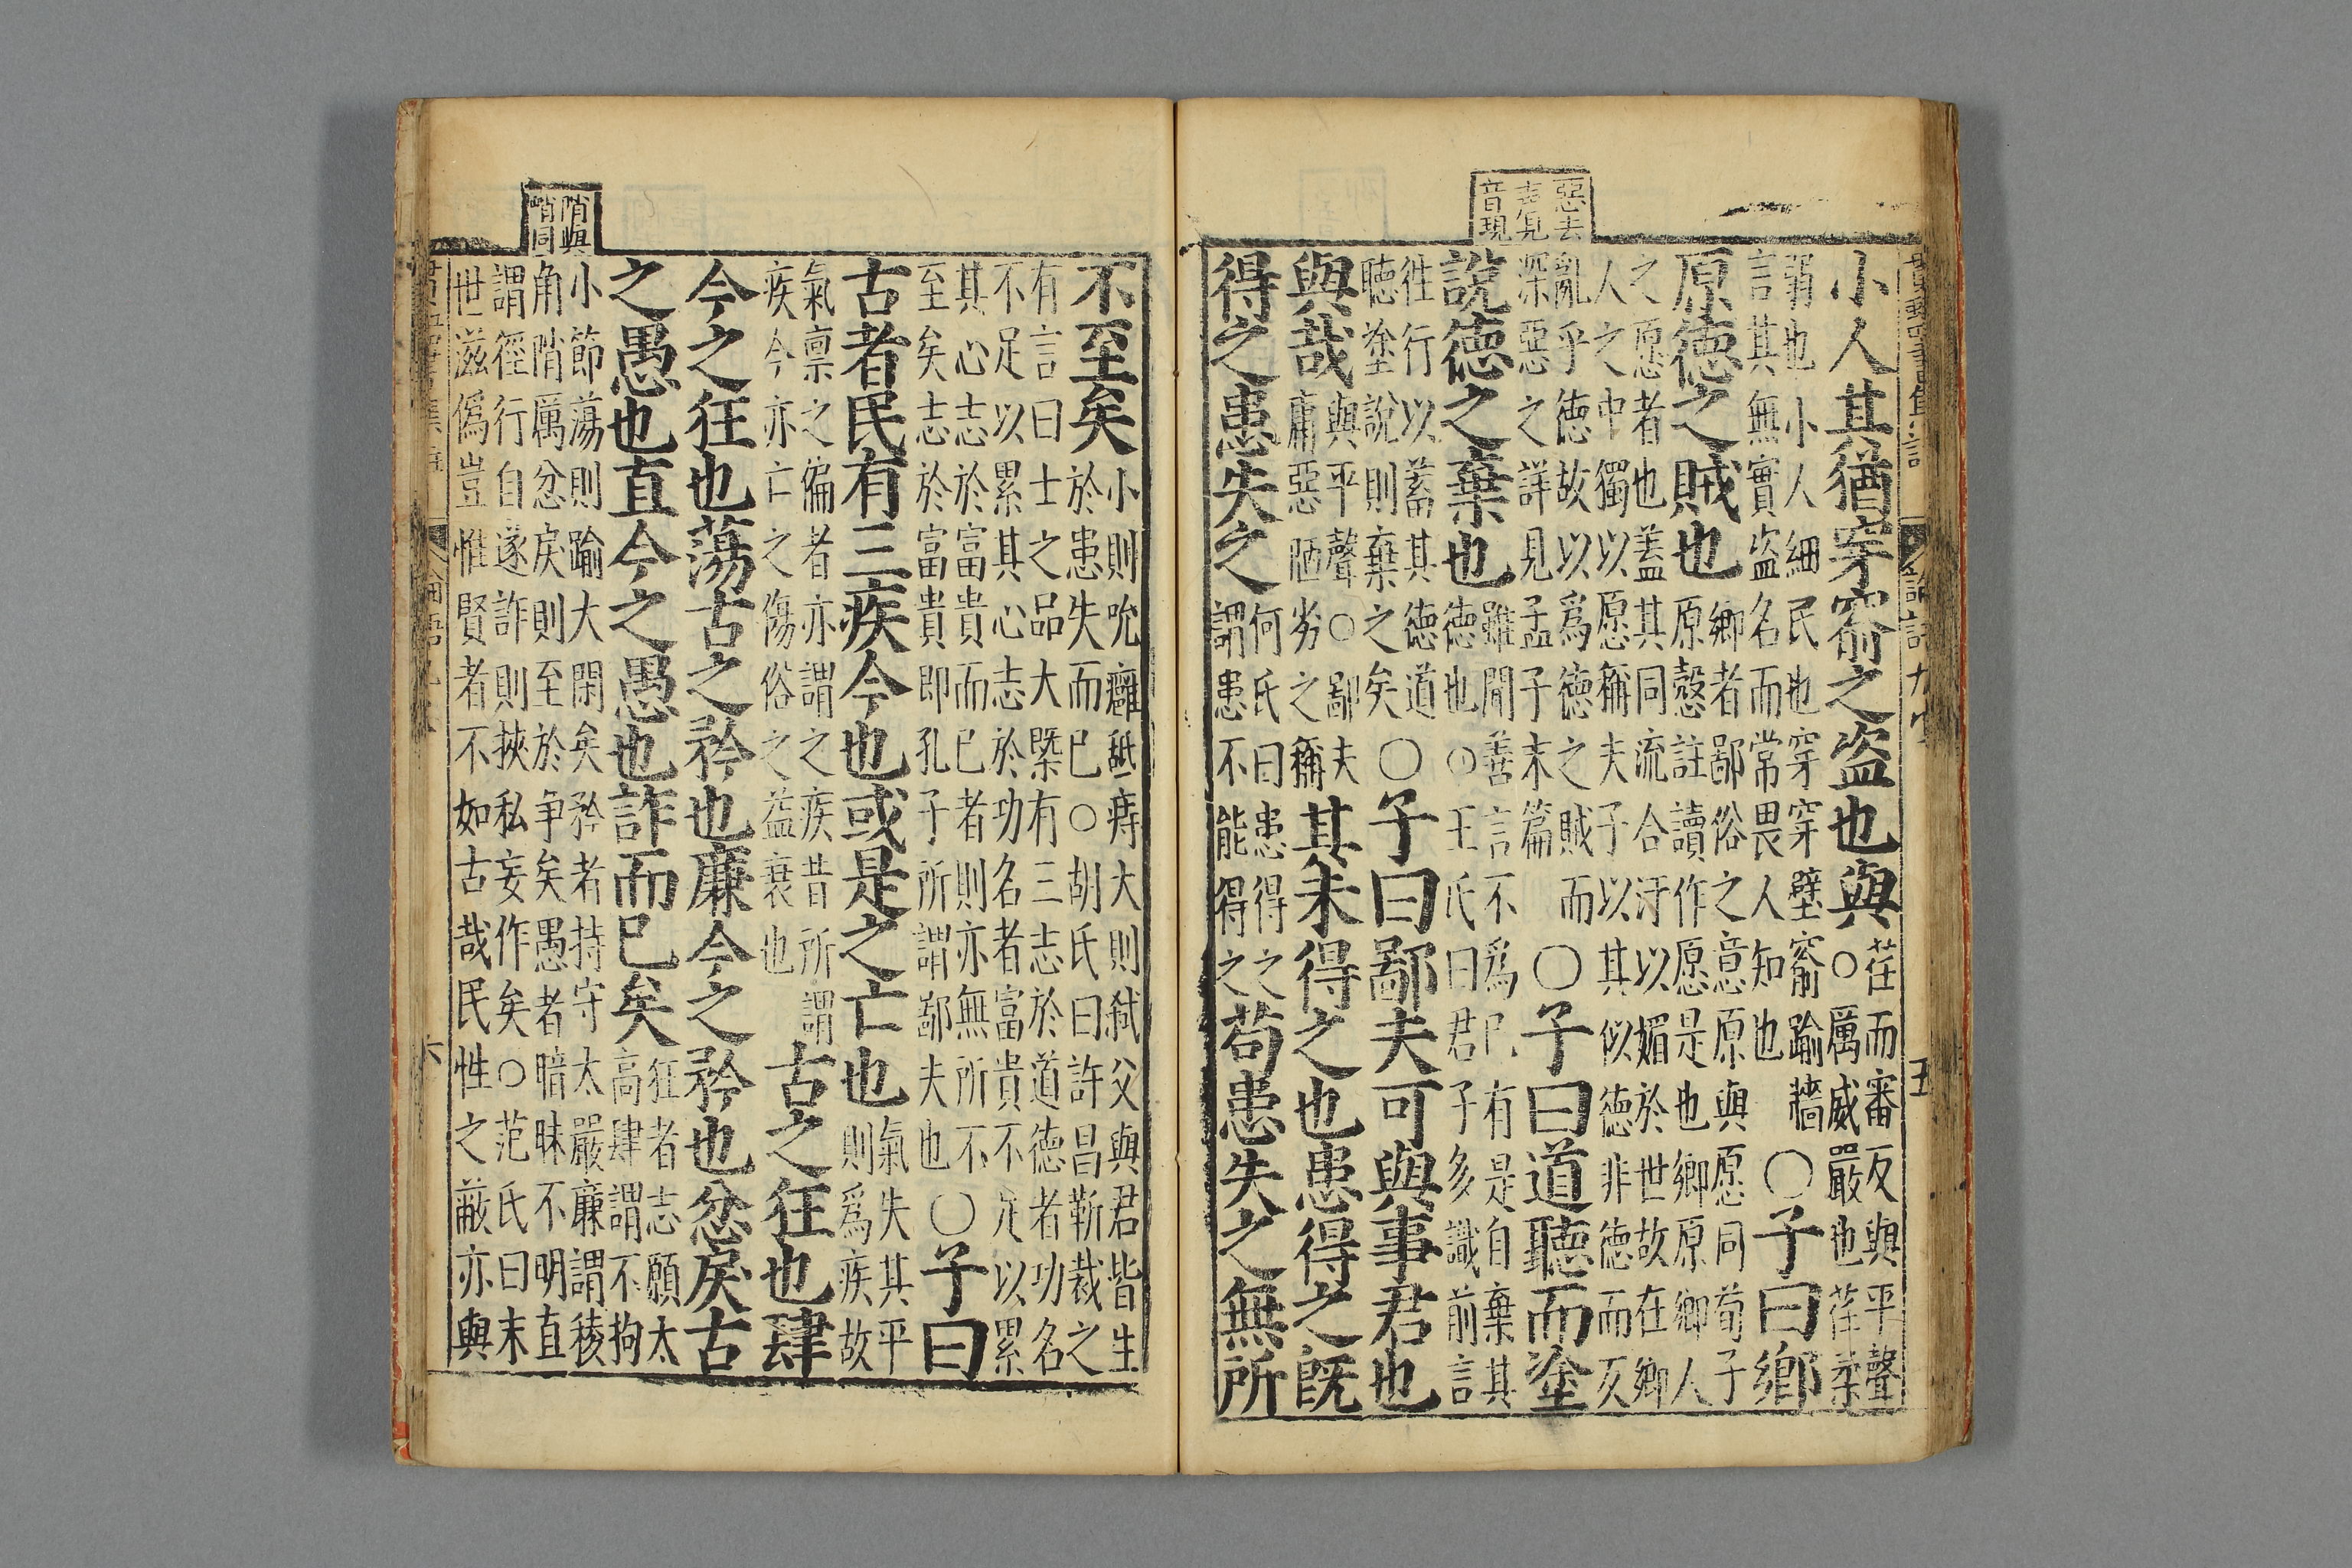 惡去
声見
音現
小人其猶穿窬之盜也與荏而審反與平聲
○厲威嚴也荏柔
弱也小人細民也穿穿壁窬踰牆
言其無實盜名而常畏人知也○子曰鄉
原德之賊也鄉者鄙俗之意原與愿同荀子
原愨註讀作愿是也鄉原鄉人
之愿者也蓋其同流合汙以媚於世故在鄉
人之中獨以愿稱夫子以其似德非德而反
亂乎德故以爲德之賊而
深惡之詳見孟子末篇○子曰道聽而塗
說德之棄也雖聞善言不爲己有是自棄其
德也○王氏曰君子多識前言
徃行以蓄其德道
聽塗說則棄之矣○子曰鄙夫可與事君也
與哉與平聲○鄙夫
庸惡陋劣之稱其未得之也患得之既
得之患失之何氏曰患得之
謂患不能得之苟患失之無所
五
陗與
峭同
不至矣小則吮癰舐痔大則弑父與君皆生
於患失而已○胡氏曰許昌靳裁之
有言曰士之品大槩有三志於道德者功名
不足以累其心志於功名者富貴不足以累
其心志於富貴而已者則亦無所不
至矣志於富貴即孔子所謂鄙夫也○子曰
古者民有三疾今也或是之亡也氣失其平
則爲疾故
氣禀之徧者亦謂之疾昔所謂
疾今亦亡之傷俗之益衰也古之狂也肆
今之狂也蕩古之矜也廉今之矜也忿戾古
之愚也直今之愚也詐而已矣狂者志願太
高肆謂不拘
小節蕩則踰大閑矣矜者持守太嚴廉謂稜
角陗厲忿戾則至於争矣愚者暗昧不明直
謂徑行自遂詐則挾私妄作矣○范氏曰末
世滋僞豈惟賢者不如古哉民性之蔽亦與
六